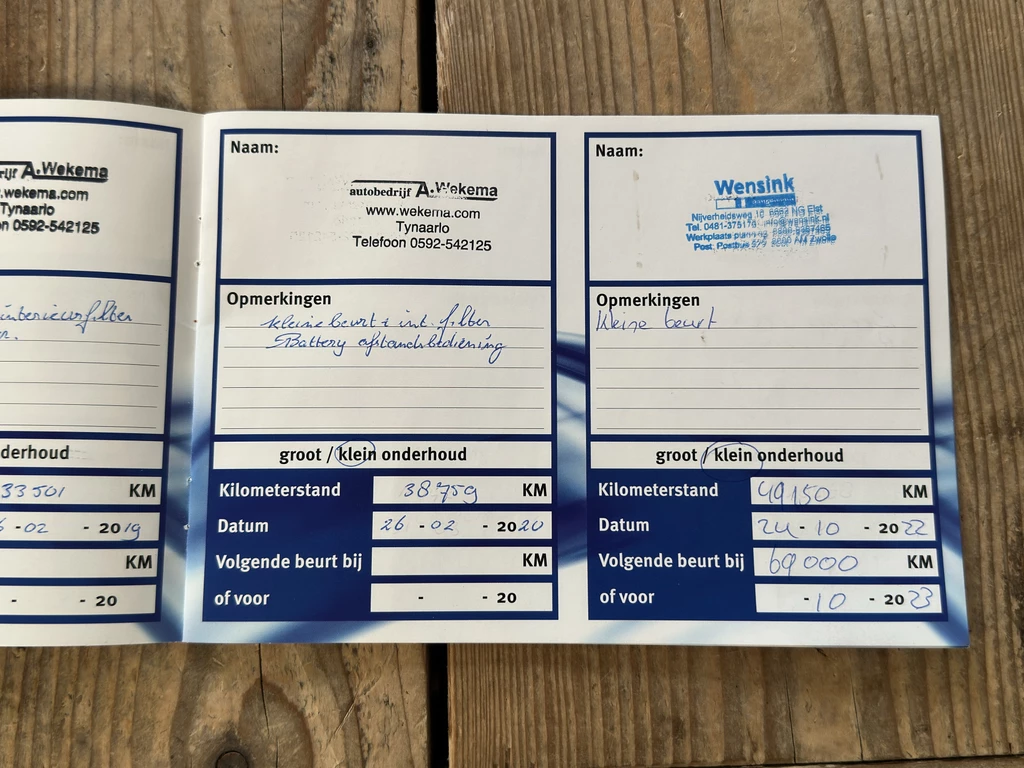 A.Wekema
.wekema.com
Tynaarlo
n 0592-542125
interieurfilter
derhoud
33501 KM
-02 - 2019
KM
- - 20
Naam:
autobedrijf A.Wekema
www.wekema.com
Tynaarlo
Telefoon 0592-542125
Opmerkingen
kleine beurt + int. filter
Battery afstandsbediening
groot / klein onderhoud
Kilometerstand 38759 KM
Datum 26 - 02 - 2020
Volgende beurt bij KM
of voor - - 20
Naam:
Wensink
Nijverheidsweg 10 NG Elst
Tel. 0481-375
Werkplaats
Post. Postbus Zwolle
Opmerkingen
kleine beurt
groot / klein onderhoud
Kilometerstand 49150 KM
Datum 24 - 10 - 2022
Volgende beurt bij 69000 KM
of voor - 10 - 2023